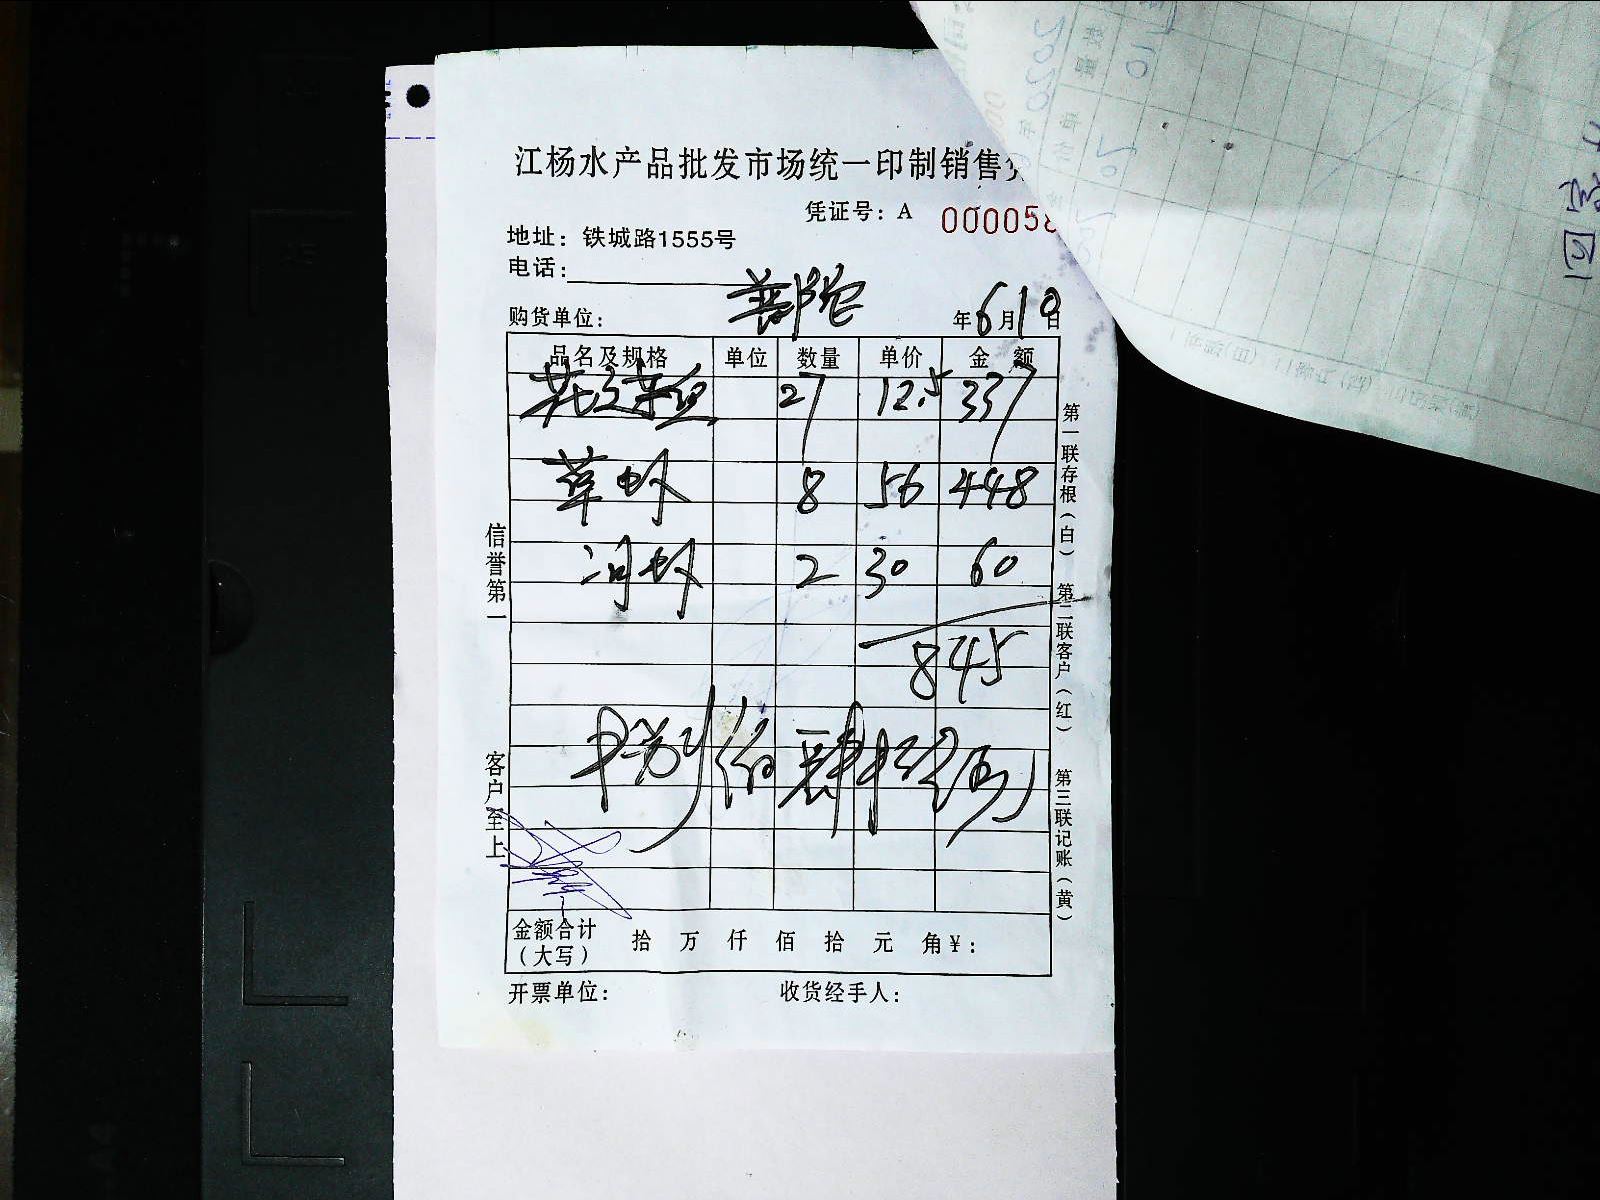 江杨水产品批发市场统一印制销售
凭证号：A 000058
地址：铁城路1555号
电话：
购货单位：
年6月10日
品名及规格 单位 数量 单价 金额
27 12.5 337
草虾 8 56 448
河虾 2 30 60
845
捌佰肆拾伍
金额合计（大写） 拾 万 仟 佰 拾 元 角 ¥：
开票单位： 收货经手人：
信誉第一 客户至上
第一联存根（白） 第二联客户（红） 第三联记账（黄）